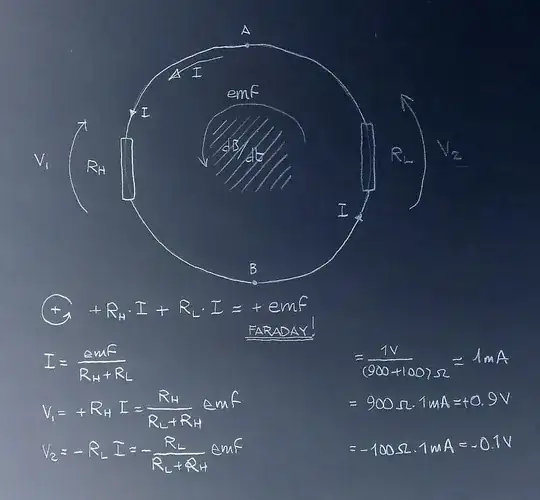 A
I
I
emf
dB/dt
V₁
R_H
R_L
V₂
I
B
+ +R_H·I + R_L·I = +emf
FARADAY!
I = emf / (R_H+R_L) = 1V / (900+100)Ω = 1mA
V₁ = +R_H I = R_H / (R_L+R_H) emf = 900Ω·1mA=+0.9V
V₂ = -R_L I = - R_L / (R_L+R_H) emf = -100Ω·1mA=-0.1V